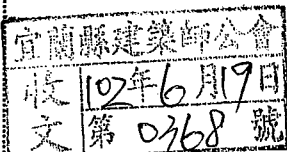 宜蘭縣建築師公會
收文
102年6月19日
第0368號